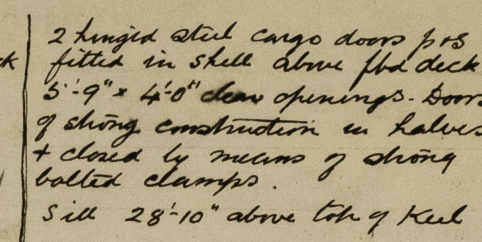 2 hinged steel cargo doors p+s
fitted in shell above fbd deck
5'-9" x 4'-0" clear openings. Doors
of strong construction in halves
+ closed by means of strong
bolted clamps.
Sill 28'-10" above top of Keel